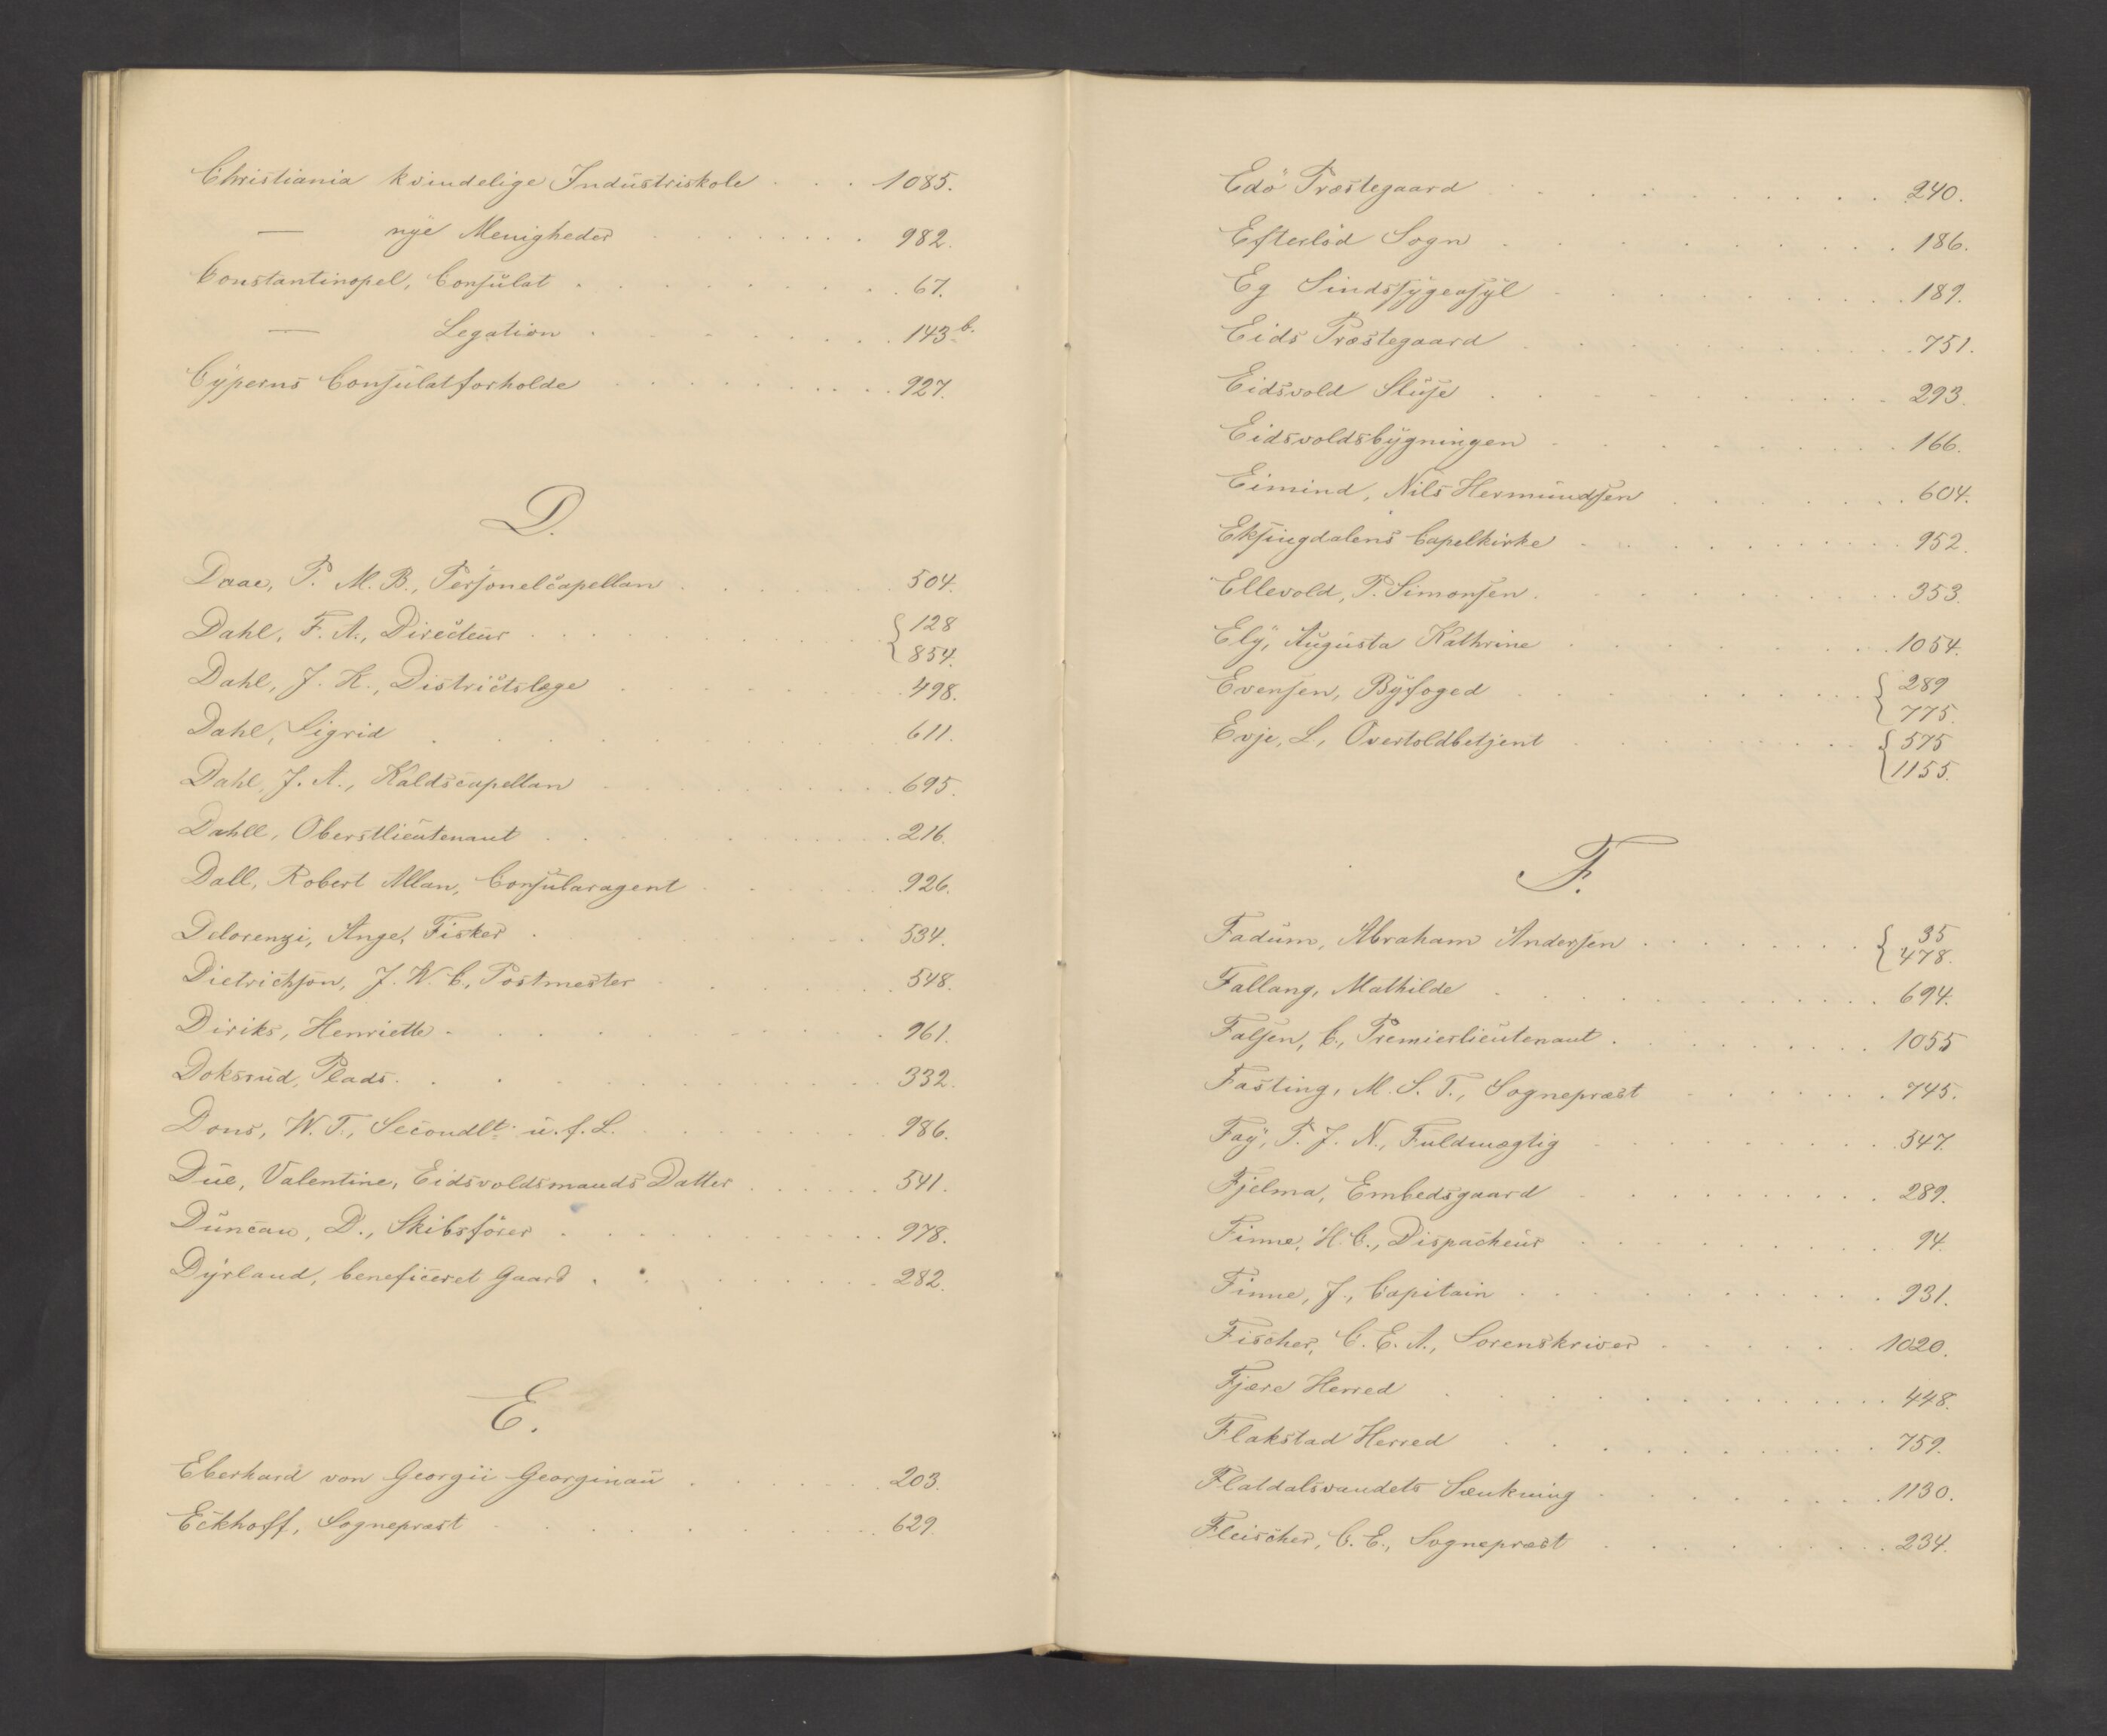 Christiania kvindelige Industriskole . . . 1085.
— nye Menigheder . . . 982.
Constantinopel, Consulat . . . 67.
— Legation . . . 143 b.
Cyperns Consulatforholde . . . 927.
D.
Daae, P. M. B., Personelcapellan . . . 504.
Dahl, F. A., Directeur . . . { 128
854.
Dahl, J. K., Districtslæge . . . 498.
Dahl, Sigrid . . . 611.
Dahl, J. A., Kaldscapellan . . . 695.
Dahll, Oberstlieutenant . . . 216.
Dall, Robert Allan, Consularagent . . . 926.
Delorenzi, Ange, Fisker . . . 534.
Dietrichson, J. W. C., Postmester . . . 548.
Diriks, Henriette . . . 961.
Doksrud, Plads . . . 332.
Dons, W. T., Secondlt. u. f. L. . . . 986.
Due, Valentine, Eidsvoldsmands Datter . . . 541.
Duncan, D., Skibsfører . . . 978.
Dyrland, beneficeret Gaard . . . 282.
E.
Eberhard von Georgii Georginau . . . 203.
Eckhoff, Sognepræst . . . 629.
Edö Præstegaard . . . 240.
Efteröd Sogn . . . 186.
Eg Sindssygeasyl . . . 189.
Eids Præstegaard . . . 751.
Eidsvold Sluse . . . 293.
Eidsvoldsbygningen . . . 166.
Eimind, Nils Hermundsen . . . 604.
Eksingdalens Capelkirke . . . 952.
Ellevold, P. Simonsen . . . 353.
Ely, Augusta Kathrine . . . 1054.
Evensen, Byfoged . . . { 289
775.
Evje, L., Overtoldbetjent . . . { 575
1155.
F.
Fadum, Abraham Andersen . . . { 35
478.
Fallang, Mathilde . . . 694.
Falsen, C., Premierlieutenant . . . 1055
Fasting, M. S. T., Sognepræst . . . 745.
Fay, P. J. N., Fuldmægtig . . . 547.
Fjelma, Embedsgaard . . . 289.
Finne, H. C., Dispacheur . . . 94.
Finne, J., Capitain . . . 931.
Fischer, C. E. A., Sorenskriver . . . 1020.
Fjære Herred . . . 448.
Flakstad Herred . . . 759.
Flatdalsvandets Sænkning . . . 1130.
Fleischer, C. E., Sognepræst . . . 234.